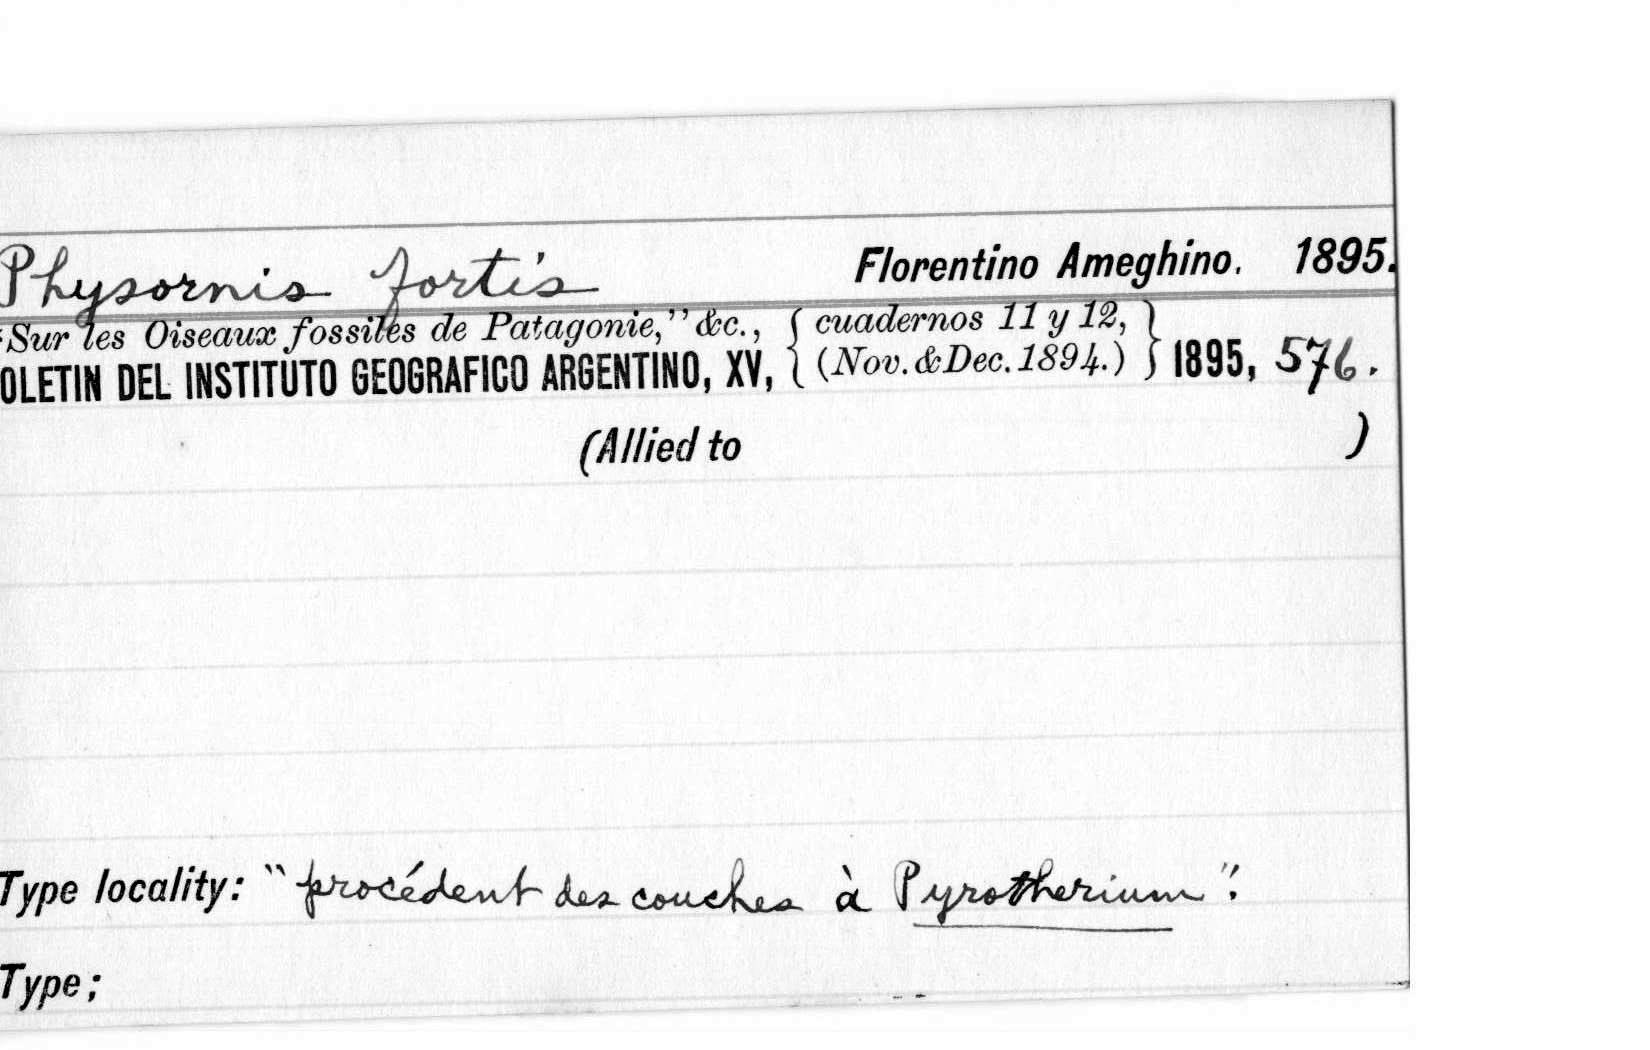 Physornis fortis Florentino Ameghino. 1895.
"Sur les Oiseaux fossiles de Patagonie," &c., { cuadernos 11 y 12,
OLETIN DEL INSTITUTO GEOGRAFICO ARGENTINO, XV, (Nov. & Dec. 1894.) } 1895, 576.
(Allied to )
Type locality: "procédent des couches à Pyrotherium".
Type;